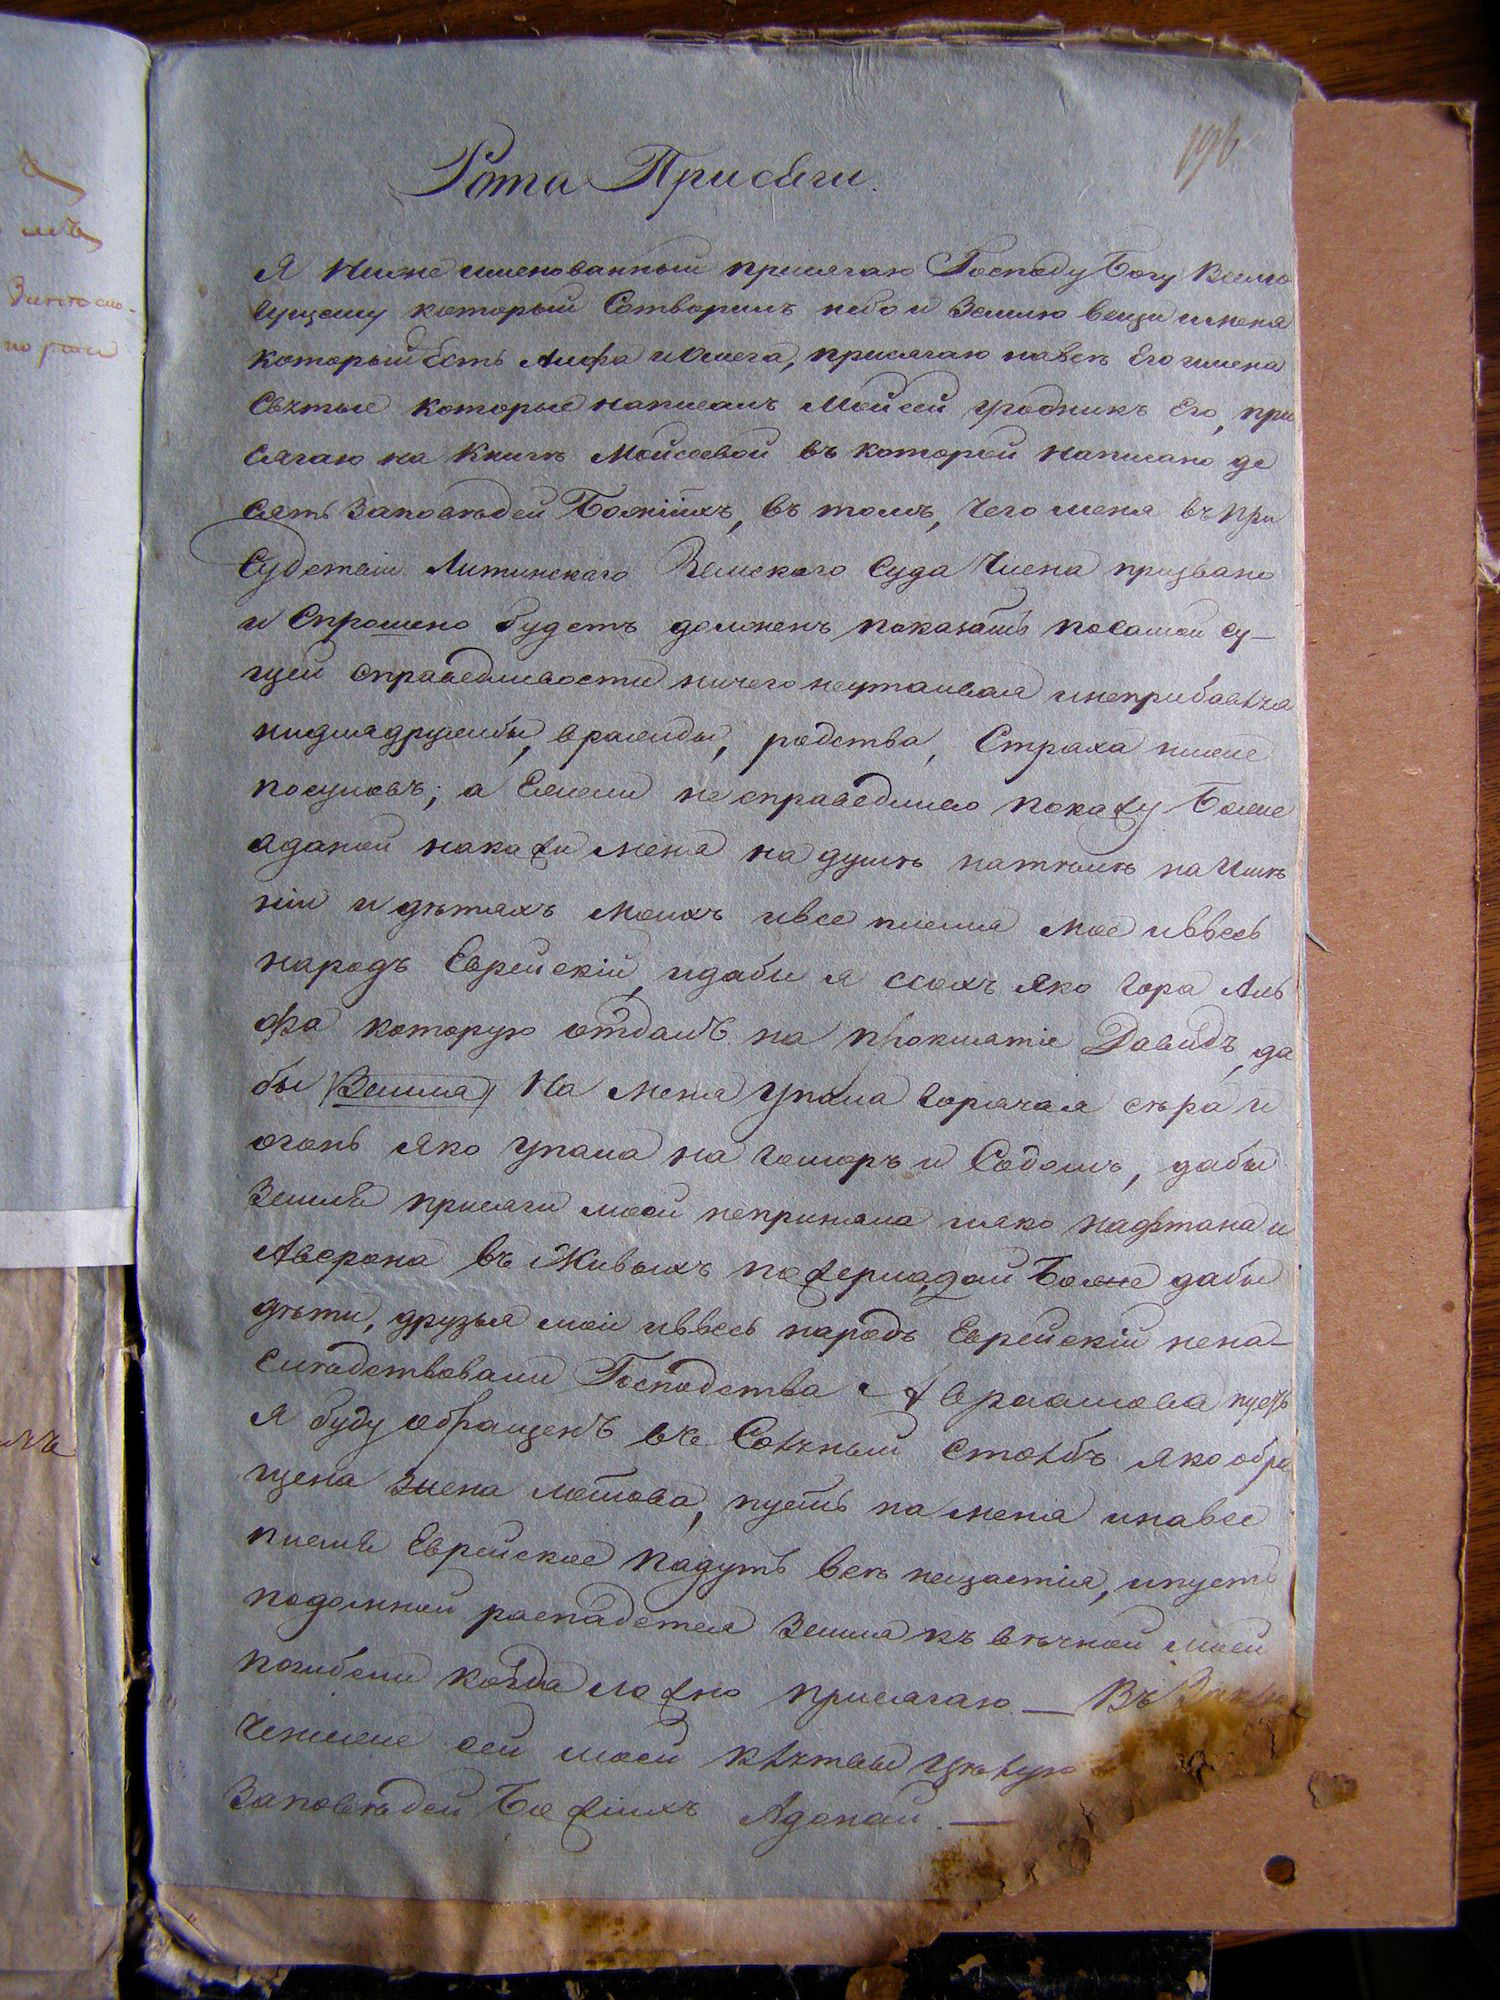 196
Рота Присяги.
Я Ниже именованный присягаю Господу Богу Всемо
гущему который Сотворилъ небо и Землю вещи имена
который Есть Алфа и Омега, присягаю навсъ Его имена
Святые которые написалъ Мойсей угодникъ Его, при
сягаю на Книгъ Мойсеевой въ которой написано де
сять Заповъдей Божіихъ, въ томъ, чего меня въ при
Судствіи Литинскаго Земскаго Суда Члена призвано
и Спрошено будетъ должекъ показать посамой су-
щей справедливости ничего неутаивая инеприбавляя
нидля дружбы, вражды, родства, Страха ниже
посуловъ; а Ежели не справедливо покажу Боже
аданой накажи меня на душъ натълъ на Имъ
ніи и дътяхъ моихъ ивсе племя мое иввесь
народъ Еврейскій, идабы я ссохъ яко гора Аль
фа которую отдалъ на проклятіе Давидъ, да
бы Земля На меня упала горячая съра и
огонь яко упала на Гоморъ и Содомъ, дабы
Земля присяги моей неприняла и яко надфтана и
Аверона въ Живыхъ пожерла, дай Боже дабы
дъти, друзья мои иввесь народъ Еврейскій нена-
слъдствовали Господства Авраамова пусть
я буду обращенъ въ Соляный столбъ яко обра
щена жена лотова, пусть на меня инавсе
племя Еврейское падутъ всъ нещастія, ипусть
подомной распадется Земля къ въчной моей
погибели когда ложно присягаю — Въ Заклю
ченіе сей моей клятвы цълую
Заповъдей Божіихъ Адонай. —